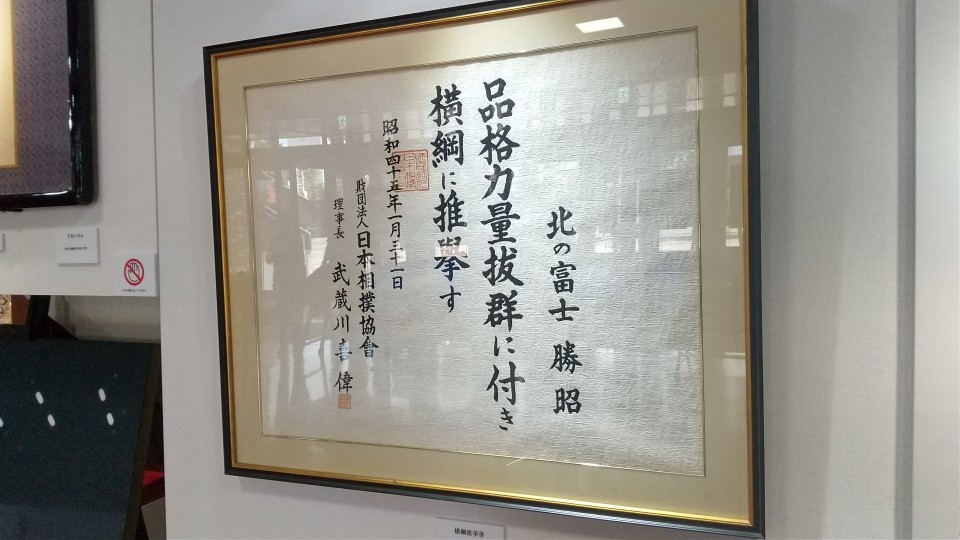 北の富士 勝昭
品格力量抜群に付き
横綱に推挙す
昭和四十五年一月三十一日
財団法人 日本相撲協會
理事長 武蔵川喜偉
横綱推挙書